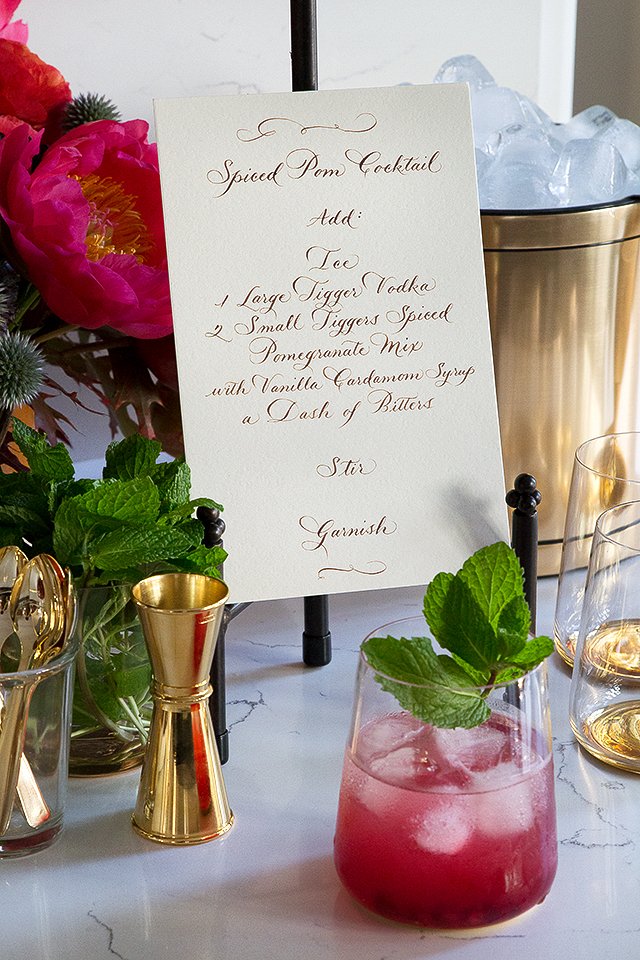 Spiced Pom Cocktail
Add:
Ice
1 Large Jigger Vodka
2 Small Jiggers Spiced
Pomegranate Mix
with Vanilla Cardamom Syrup
a Dash of Bitters
Stir
Garnish